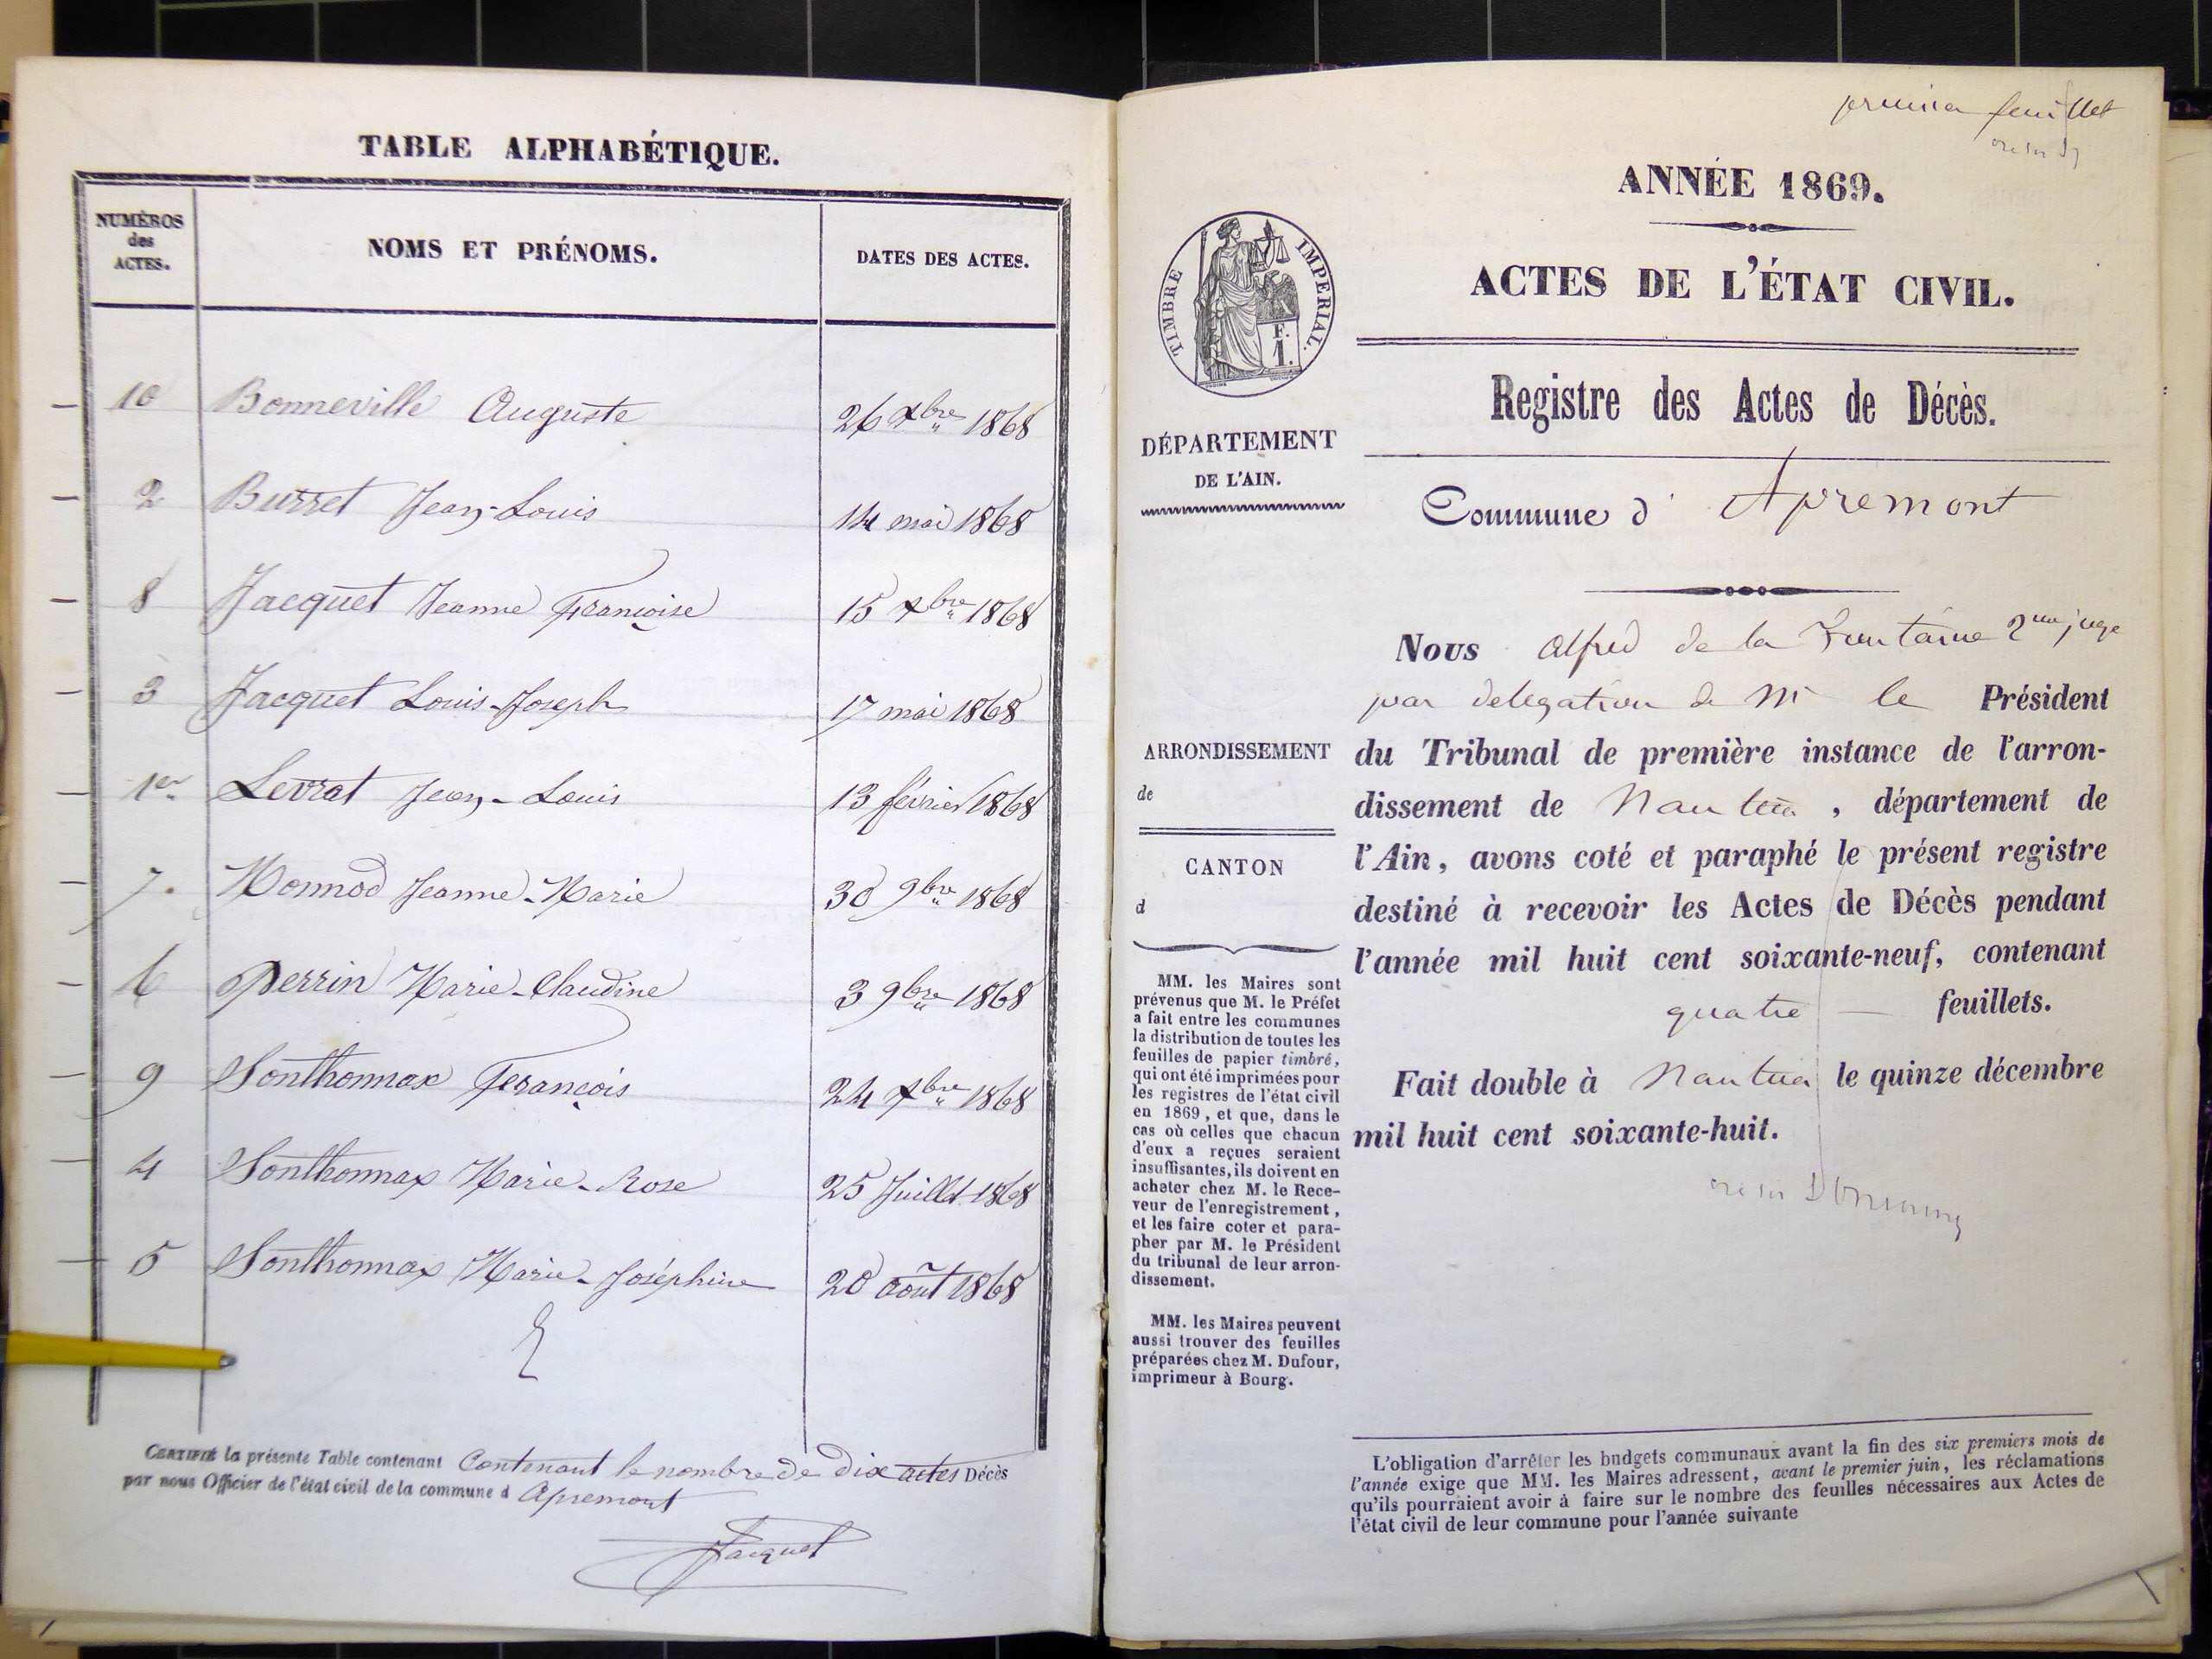 TABLE ALPHABÉTIQUE.
NUMÉROS
des
ACTES.
NOMS ET PRÉNOMS.
DATES DES ACTES.
10 Bonneville Auguste 26 Xbre 1868
2 Burret Jean-Louis 14 mai 1868
8 Jacquet Jeanne Françoise 15 Xbre 1868
3 Jacquet Louis-Joseph 17 mai 1868
1er Levrat Jean-Louis 13 février 1868
7. Monnod Jeanne-Marie 30 9bre 1868
6 Perrin Marie-Claudine 3 9bre 1868
9 Sonthonnax François 24 Xbre 1868
4 Sonthonnax Marie-Rose 25 Juillet 1868
5 Sonthonnax Marie-Joséphine 20 août 1868
CERTIFIÉ la présente Table contenant Contenant le nombre de dix actes Décès
par nous Officier de l'état civil de la commune d Apremont
Jacquet
premier feuillet
ANNÉE 1869.
TIMBRE IMPERIAL.
F.
1.
ACTES DE L'ÉTAT CIVIL.
Registre des Actes de Décès.
DÉPARTEMENT
DE L'AIN.
Commune d' Apremont
Nous Alfred de la Funtaine 2me juge
par delegation de Mr le Président
du Tribunal de première instance de l'arron-
dissement de Nantua, département de
l'Ain, avons coté et paraphé le présent registre
destiné à recevoir les Actes de Décès pendant
l'année mil huit cent soixante-neuf, contenant
quatre — feuillets.
Fait double à Nantua le quinze décembre
mil huit cent soixante-huit.
ARRONDISSEMENT
de
CANTON
d
MM. les Maires sont
prévenus que M. le Préfet
a fait entre les communes
la distribution de toutes les
feuilles de papier timbré,
qui ont été imprimées pour
les registres de l'état civil
en 1869, et que, dans le
cas où celles que chacun
d'eux a reçues seraient
insuffisantes, ils doivent en
acheter chez M. le Rece-
veur de l'enregistrement,
et les faire coter et para-
pher par M. le Président
du tribunal de leur arron-
dissement.
MM. les Maires peuvent
aussi trouver des feuilles
préparées chez M. Dufour,
imprimeur à Bourg.
L'obligation d'arrêter les budgets communaux avant la fin des six premiers mois de
l'année exige que MM. les Maires adressent, avant le premier juin, les réclamations
qu'ils pourraient avoir à faire sur le nombre des feuilles nécessaires aux Actes de
l'état civil de leur commune pour l'année suivante